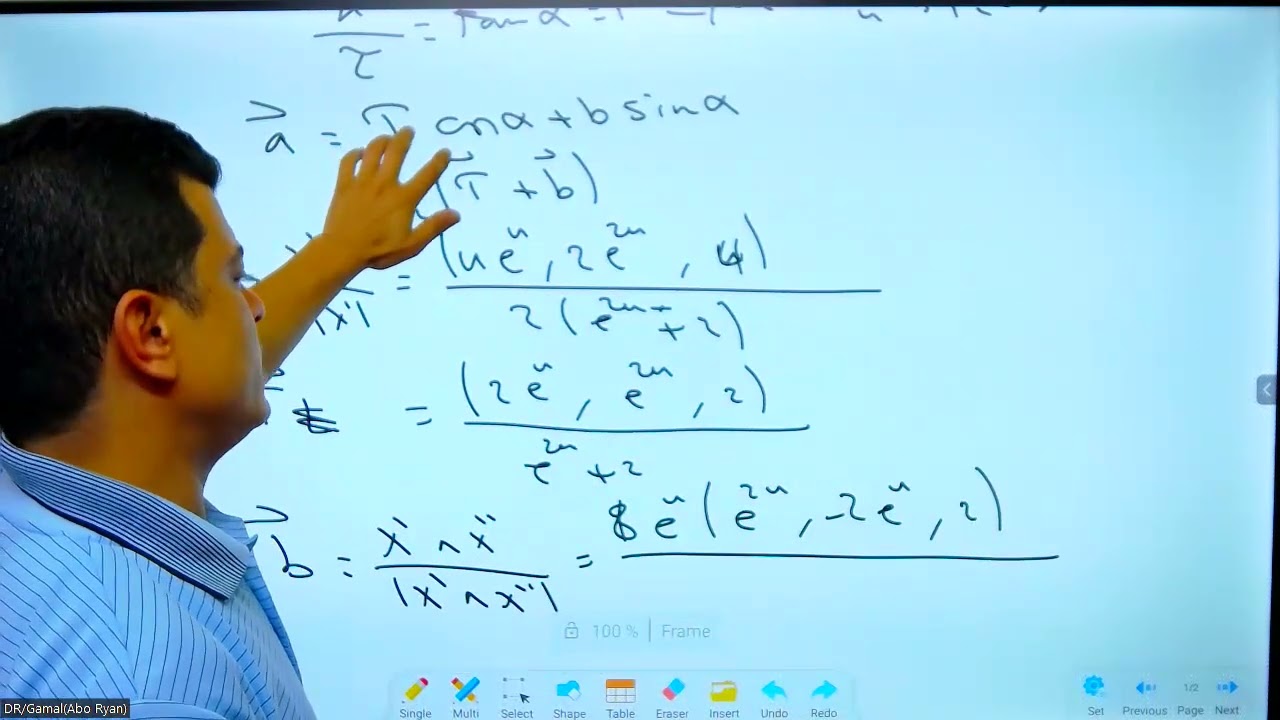 τ = tan α =
a⃗ = T cos α + b sin α
(T⃗ + b⃗)
= (4e^u, 2e^{2u}, 4)
|x'| 2(e^{2u} + 2)
= (2e^u, e^{2u}, 2)
e^{2u} + 2
b⃗ = x' ∧ x'' = 8e^u(e^{2u}, -2e^u, 2)
|x' ∧ x''|
100 % | Frame
Single Multi Select Shape Table Eraser Insert Undo Redo Set Previous 1/2 Page Next
DR/Gamal(Abo Ryan)